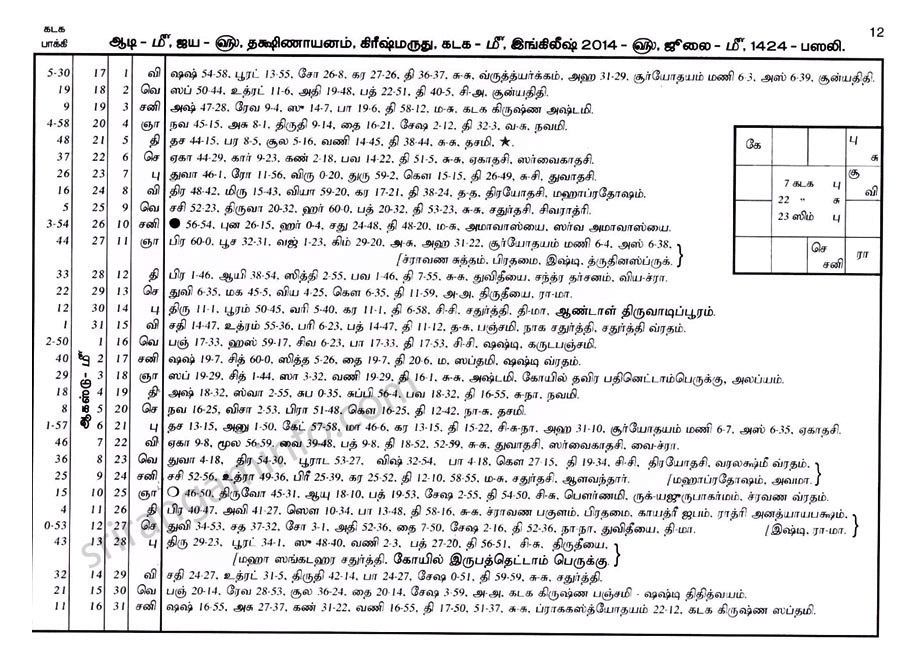 கடக பாக்கி
ஆடி - மீ, ஜய - ௵, தக்ஷிணாயனம், கிரீஷ்மருது, கடக - மீ, இங்கிலீஷ் 2014 - ௵, ஜூலை - மீ, 1424 - பஸலி.
12
5-30 17 1 வி ஷஷ் 54-58, பூரட் 13-55, சோ 26-8, கர 27-26, தி 36-37, சு-சு, வ்ருத்த்யர்க்கம், அஹ 31-29, சூர்யோதயம் மணி 6-3, அஸ் 6-39, சூன்யதிதி.
19 18 2 வெ ஸப் 50-44, உத்ரட் 11-6, அதி 19-48, பத் 22-51, தி 40-5, சி-அ, சூன்யதிதி
9 19 3 சனி அஷ் 47-28, ரேவ 9-4, ஸு 14-7, பா 19-6, தி 58-12, ம-சு, கடக கிருஷ்ண அஷ்டமி.
4-58 20 4 ஞா நவ 45-15, அசு 8-1, திருதி 9-14, தை 16-21, சேஷ 2-12, தி 32-3, வ-சு, நவமி.
48 21 5 தி தச 44-15, பர 8-5, சூல 5-16, வணி 14-45, தி 38-44, சு-சு, தசமி, ★.
37 22 6 செ ஏகா 44-29, கார் 9-23, கண் 2-18, பவ 14-22, தி 51-5, சு-சு, ஏகாதசி, ஸர்வைகாதசி.
26 23 7 பு துவா 46-1, ரோ 11-56, விரு 0-20, துரு 59-2, கௌ 15-15, தி 26-49, சு-சி, துவாதசி.
16 24 8 வி திர 48-42, மிரு 15-43, வியா 59-20, கர 17-21, தி 38-24, த-த, திரயோதசி, மஹாப்ரதோஷம்.
5 25 9 வெ சசி 52-23, திருவா 20-32, ஹர் 60-0, பத் 20-32, தி 53-23, சு-சு, சதுர்தசி, சிவராத்ரி.
3-54 26 10 சனி ● 56-54, புன 26-15, ஹர் 0-4, சது 24-48, தி 48-20, ம-சு, அமாவாஸ்யை, ஸர்வ அமாவாஸ்யை.
44 27 11 ஞா பிர 60-0, பூச 32-31, வஜ் 1-23, கிம் 29-20, அ-சு, அஹ 31-22, சூர்யோதயம் மணி 6-4, அஸ் 6-38,
[ச்ராவண சுத்தம், பிரதமை, இஷ்டி, த்ருதினஸ்ப்ருக்.
33 28 12 தி பிர 1-46, ஆயி 38-54, ஸித்தி 2-55, பவ 1-46, தி 7-55, சு-சு, துவிதீயை, சந்த்ர தர்சனம், விய-ச்ரா.
22 29 13 செ துவி 6-35, மக 45-5, விய 4-25, கௌ 6-35, தி 11-59, அ-அ, திருதீயை, ரா-மா.
12 30 14 பு திரு 11-1, பூரம் 50-45, வரி 5-40, கர 11-1, தி 6-58, சி-சி, சதுர்த்தி, தி-மா, ஆண்டாள் திருவாடிப்பூரம்.
1 31 15 வி சதி 14-47, உத்ரம் 55-36, பரி 6-23, பத் 14-47, தி 11-12, த-சு, பஞ்சமி, நாக சதுர்த்தி, சதுர்த்தி வ்ரதம்.
2-50 1 16 வெ பஞ் 17-33, ஹஸ் 59-17, சிவ 6-23, பா 17-33, தி 17-53, சி-சி, ஷஷ்டி, கருடபஞ்சமி.
ஆகஸ்டு- மீ
40 2 17 சனி ஷஷ் 19-7, சித் 60-0, ஸித்த 5-26, தை 19-7, தி 20-6, ம, ஸப்தமி, ஷஷ்டி வ்ரதம்.
29 3 18 ஞா ஸப் 19-29, சித் 1-44, ஸா 3-32, வணி 19-29, தி 16-1, சு-சு, அஷ்டமி, கோயில் தவிர பதினெட்டாம்பெருக்கு, அலப்யம்.
18 4 19 தி அஷ் 18-32, ஸ்வா 2-55, சுப 0-35, சுப்பி 56-4, பவ 18-32, தி 16-55, சு-நா, நவமி.
8 5 20 செ நவ 16-25, விசா 2-53, பிரா 51-48, கௌ 16-25, தி 12-42, நா-சு, தசமி.
1-57 6 21 பு தச 13-15, அனு 1-50, கேட் 57-58, மா 46-6, கர 13-15, தி 15-22, சி-சு-நா, அஹ 31-10, சூர்யோதயம் மணி 6-7, அஸ் 6-35, ஏகாதசி.
46 7 22 வி ஏகா 9-8, மூல 56-59, வை 39-48, பத் 9-8, தி 18-52, 52-59, சு-சு, துவாதசி, ஸர்வைகாதசி, வை-ச்ரா.
36 8 23 வெ துவா 4-18, திர 54-30, பூராட 53-27, விஷ் 32-54, பா 4-18, கௌ 27-15, தி 19-34, சி-சி, திரயோதசி, வரலக்ஷ்மீ வ்ரதம்,
25 9 24 சனி சசி 52-56, உத்ரா 49-36, பிரீ 25-39, கர 25-52, தி 12-10, 58-55, ம-சு, சதுர்தசி, ஆளவந்தார். [மஹாப்ரதோஷம், அவமா.
15 10 25 ஞா ○ 46-50, திருவோ 45-31, ஆயு 18-10, பத் 19-53, சேஷ 2-55, தி 54-50, சி-சு, பௌர்ணமி, ருக்-யஜுருபாகர்மம், ச்ரவண வ்ரதம்.
4 11 26 தி பிர 40-47, அவி 41-27, ஸௌ 10-34, பா 13-48, தி 58-16, சு-சு, ச்ராவண பகுளம், பிரதமை, காயத்ரீ ஜபம், ராத்ரி அனத்யாயபக்ஷம்,
0-53 12 27 செ துவி 34-53, சத 37-32, சோ 3-1, அதி 52-36, தை 7-50, சேஷ 2-16, தி 52-36, நா-நா, துவிதீயை, தி-மா. [இஷ்டி, ரா-மா.
43 13 28 பு திரு 29-23, பூரட் 34-1, ஸு 48-40, வணி 2-3, பத் 27-20, தி 56-51, சி-சு, திருதீயை,
[மஹா ஸங்கடஹர சதுர்த்தி, கோயில் இருபத்தெட்டாம் பெருக்கு.
32 14 29 வி சதி 24-27, உத்ரட் 31-5, திருதி 42-14, பா 24-27, சேஷ 0-51, தி 59-59, சு-சு, சதுர்த்தி.
21 15 30 வெ பஞ் 20-14, ரேவ 28-53, சூல 36-24, தை 20-14, சேஷ 3-59, அ-அ, கடக கிருஷ்ண பஞ்சமி - ஷஷ்டி திதித்வயம்.
11 16 31 சனி ஷஷ் 16-55, அசு 27-37, கண் 31-22, வணி 16-55, தி 17-50, 51-37, சு-சு, ப்ராககஸ்த்யோதயம் 22-12, கடக கிருஷ்ண ஸப்தமி.
கே
பு
சு
சூ
வி
7 கடக பு
22 " சு
23 ஸிம் பு
செ
சனி
ரா
srirangaminfo.com